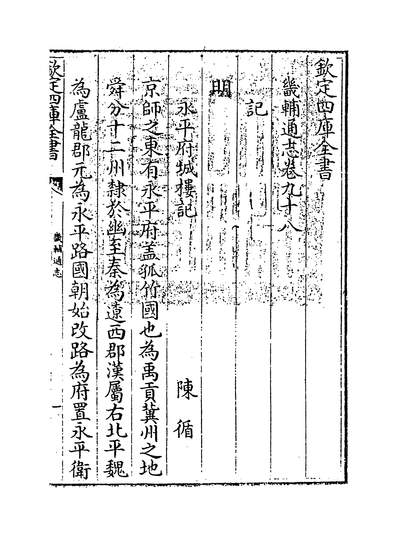 欽定四庫全書
畿輔通志卷九十八
記
明
永平府城樓記
陳循
京師之東有永平府蓋孤竹國也為禹貢冀州之地
舜分十二州隸於幽至秦為遼西郡漢屬右北平魏
為盧龍郡元為永平路國朝始改路為府置永平衛
欽定四庫全書
畿輔通志
一